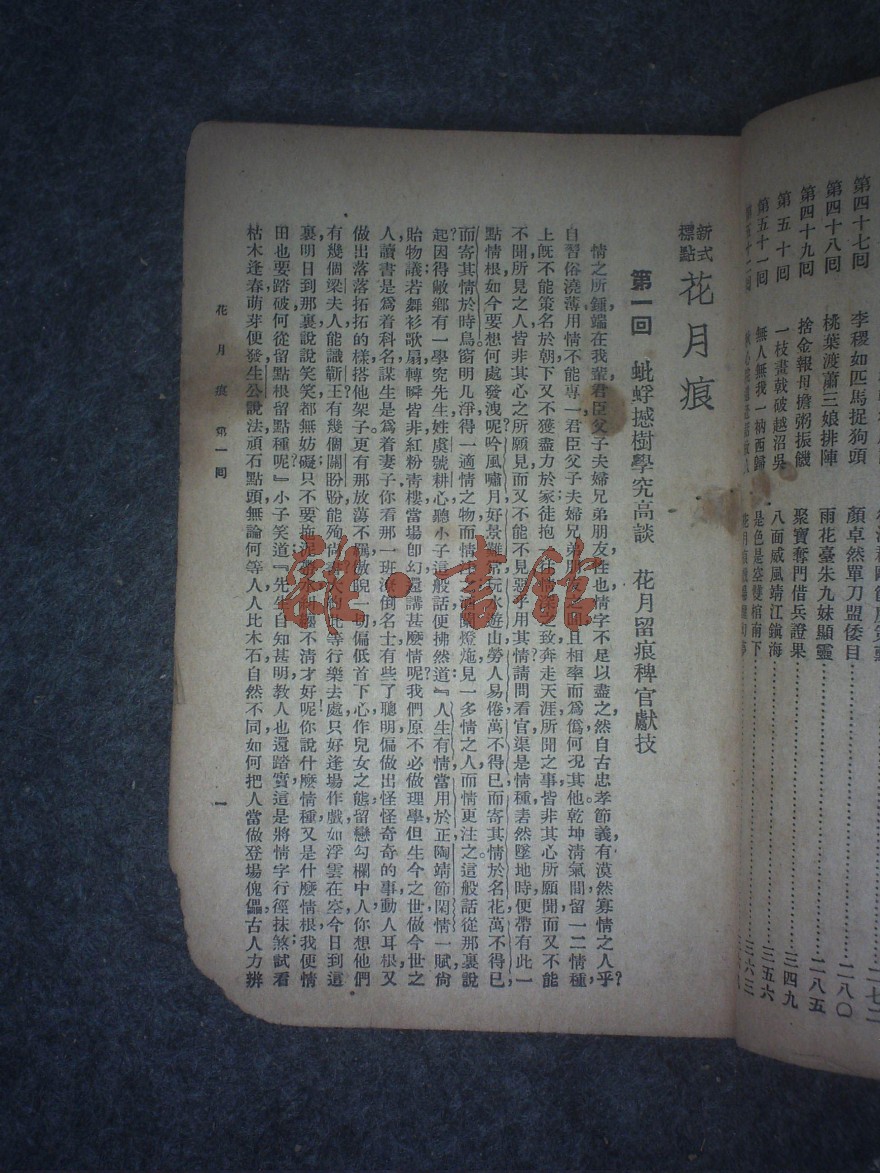 第四十七回 李稷如匹馬捉狗頭 顏卓然單刀盟倭目……二八〇
第四十八回 桃葉渡蕭三娘排陣 雨花臺朱九妹顯靈……二八五
第四十九回 捨金報母擔粥振饑 聚寶奪門借兵證果……三四九
第五十回 一枝畫戟破越沼吳 八面威風靖江鎮海……三五六
第五十一回 無人無我一衲西歸 是色是空雙棺南下……三六三
新式標點 花月痕
第一回 蚍蜉撼樹學究高談 花月留痕稗官獻技
情之所鍾,端在我輩。君臣父子夫婦兄弟朋友性也,情字不足以盡之。然自古忠孝節義,有漠然寡情之人乎?
自習俗澆薄,用情不能專一,君臣父子夫婦兄弟朋友之間,且相率而爲僞,何況其他。乾坤清氣間留一二情種,
上旣不能策名於朝,下又不獲盡力於家,徒抱一往情深之致,奔走天涯,所聞之事,皆非其心所願聞,而又不能
不聞,所見之人,皆非其心之所願見,而又不能不見,惡乎用其情?請問看官,渠是情種,素然墜地時便帶有此一
點情根,如今要想何處發洩呢?吟風嘯月,好景難常,玩水遊山,勞人易倦,萬不得已而寄其情於名花,萬不得已
而寄其情於時鳥,窗明几淨,得一適情之物而情注之,酒闌燈灺,見一多情之人而情更注之。這般話從那裏說
起?因得敝鄉有一學究先生,姓虞號耕心,聽小子這般話,便拂然道:『人生有情,當用於正,陶靖節閑情一賦,尙
貽物議,若舞衫歌扇,轉瞬皆非,紅粉青樓,當場卽幻,還講甚麼情呢?我們原不必做理學,但生今之世,做今世之
人,讀書是爲着科名,謀生是爲着妻子,你看那一班潦倒名士,有些了聰明,偏做出怪怪奇奇的事,動人耳根,又
做出落落拓拓的樣,搭他架子。更有那放蕩不羈,傲睨一切,偏低首下心作兒女之態,留戀勾欄中人,你想他們
有幾個梁夫人能識靳王,有幾個關盼盼能殉尙書,大約此等行樂去處,只好逢場作戲,如浮雲在空,今日到這
裏,明日到那裏,說說笑笑,都無妨礙,只不要拖泥帶水,糾纏不清才好呢!你說什麼情種,又是什麼情根,我便情
田也要踏破,何從留點根留點種呢?』小子笑道:『先生自知甚明,教人也還踏實,這是將情字行徑抹煞。試看
枯木逢春,萌芽便發,生公說法,頑石點頭,無論何等人,人比木石自然不同,如何把人當做登場傀儡?古人力辨
花月痕 第一回 一
雜·書館